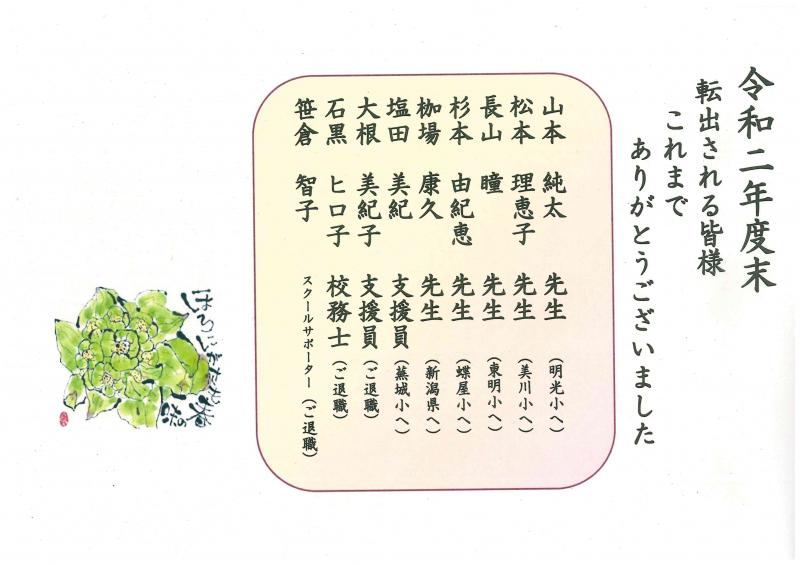 令和二年度末
転出される皆様
これまで
ありがとうございました
山本 純太 先生（明光小へ）
松本 理恵子 先生（美川小へ）
長山 瞳 先生（東明小へ）
杉本 由紀恵 先生（蝶屋小へ）
枷場 康久 先生（新潟県へ）
塩田 美紀 支援員（蕪城小へ）
大根 美紀子 支援員（ご退職）
石黒 ヒロ子 校務士（ご退職）
笹倉 智子 スクールサポーター（ご退職）